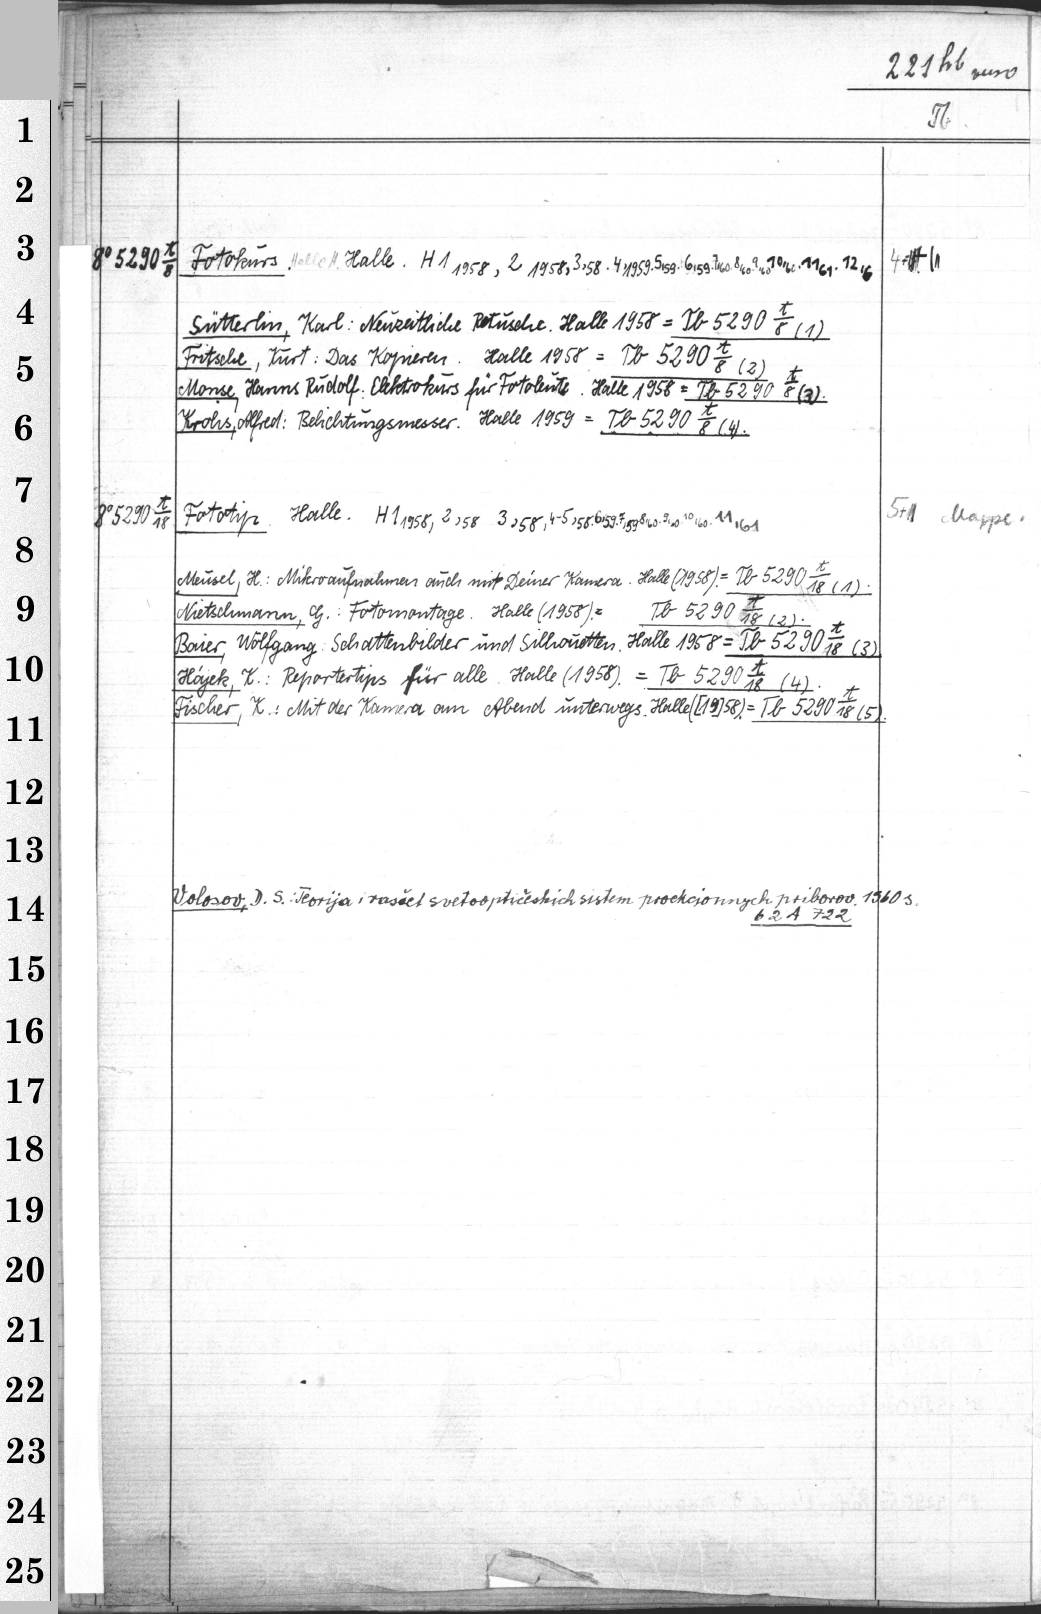 221 hb verso
Tb.
1
2
3
8° 5290 t/8 Fotokurs. Halle. H 1 1958, 2 1958, 3,58. 4,1959. 5,59. 6,59. 7,60. 8,60. 9,60. 10,60. 11,61. 12,6 4+
4
Sütterlin, Karl: Neuzeitliche Retusche. Halle 1958 = Tb 5290 t/8 (1)
5
Fritsche, Kurt: Das Kopieren. Halle 1958 = Tb 5290 t/8 (2)
Monse, Hanns Rudolf: Elektrokurs für Fotoleute. Halle 1958 = Tb 5290 t/8 (3).
6
Krohs, Alfred: Belichtungsmesser. Halle 1959 = Tb 5290 t/8 (4).
7
8° 5290 t/18 Fototip. Halle. H 1 1958, 2,58 3,58, 4-5,58. 6,59. 7,59. 8,60. 9,60. 10,60. 11,61 5+ Mappe.
8
Meusel, H.: Mikroaufnahmen auch mit Deiner Kamera. Halle (1958). = Tb 5290 t/18 (1).
9
Nietschmann, G.: Fotomontage. Halle (1958). = Tb 5290 t/18 (2).
Baier, Wolfgang: Schattenbilder und Silhouetten. Halle 1958 = Tb 5290 t/18 (3)
10
Hájek, K.: Reportertips für alle. Halle (1958). = Tb 5290 t/18 (4).
Fischer, K.: Mit der Kamera am Abend unterwegs. Halle ([19]58). = Tb 5290 t/18 (5).
11
12
13
14
Volosov, D. S.: Teorija i rasčet svetooptičeskich sistem proekcionnych priborov. 1960 s.
62 A 722
15
16
17
18
19
20
21
22
23
24
25